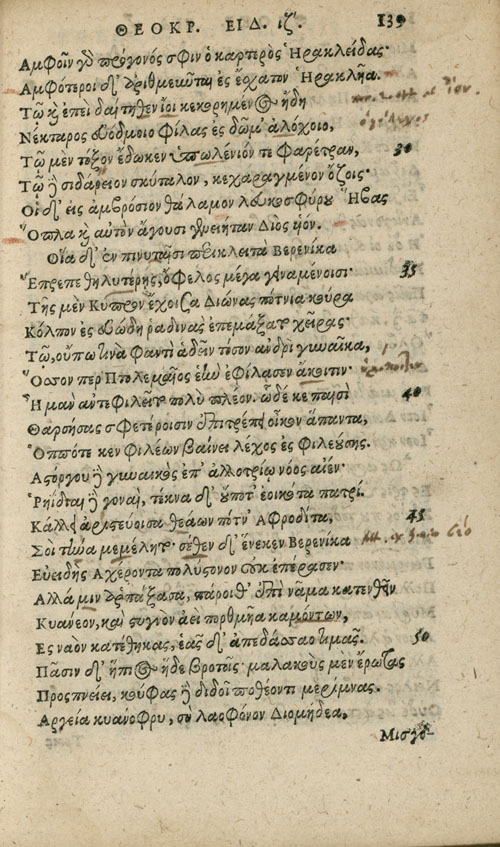 ΘΕΟΚΡ. ΕΙΔ. ιζ΄. 139
Αμφοῖν γὰρ πρόγονός σφιν ὁ καρτερὸς Ἡρακλείδας·
Αμφότεροι δ' ἀριθμεῦνται ἐς ἔσχατον Ἡρακλῆα.
Τῷ καὶ ἐπεὶ δαίτηθεν ἴοι κεκορημένος ἤδη
Νέκταρος εὐόδμοιο φίλας ἐς δῶμ' ἀλόχοιο,
Τῷ μὲν τόξον ἔδωκεν ὑπωλένιόν τε φαρέτραν, 30
Τῷ δὲ σιδάρειον σκύταλον, κεχαραγμένον ὄζοις·
Οἱ δ' εἰς ἀμβρόσιον θάλαμον λευκοσφύρου Ἥβας
Ὅπλα καὶ αὐτὸν ἄγουσι γενειήταν Διὸς υἱόν.
Οἵα δ' ἐν πινυταῖσι περικλειτὰ Βερενίκα
Ἔπρεπε θηλυτέρῃς, ὄφελος μέγα γειναμένοισι· 35
Τῆς μὲν Κύπρον ἔχοισα Διώνας πότνια κούρα
Κόλπον ἐς εὐώδη ῥαδινὰς ἐπεμάξατο χεῖρας·
Τῷ, οὔπω τινὰ φαντὶ ἁδεῖν τόσον ἀνδρὶ γυναῖκα,
Ὅσσον περ Πτολεμαῖος ἑὴν ἐφίλασεν ἄκοιτιν·
Ἦ μὰν ἀντεφιλεῖτο πολὺ πλέον. ὧδέ κε παισὶ 40
Θαρσήσας σφετέροισιν ἐπιτρέποι οἶκον ἅπαντα,
Ὁππότε κεν φιλέων βαίνει λέχος ἐς φιλεύσης.
Αστόργου δὲ γυναικὸς ἐπ' ἀλλοτρίῳ νόος αἰέν·
Ῥηΐδιαι δὲ γοναί, τέκνα δ' οὔποτ' ἐοικότα πατρί.
Κάλλει ἀριστεύοισα θεάων πότν' Αφροδίτα, 45
Σοὶ τήνα μεμέλητο· σέθεν δ' ἕνεκεν Βερενίκα
Εὐειδὴς Αχέροντα πολύστονον οὐκ ἐπέρασεν·
Αλλά μιν ἁρπάξασα, πάροιθ' ἐπὶ νᾶμα κατενθεῖν
Κυάνεον, καὶ στυγνὸν ἀεὶ πορθμῆα καμόντων,
Ες ναὸν κατέθηκας, ἑᾶς δ' ἀπεδάσσαο τιμᾶς. 50
Πᾶσιν δ' ἤπιος ἥδε βροτοῖς· μαλακοὺς μὲν ἔρωτας
Προσπνείει, κούφας δὲ διδοῖ ποθέοντι μερίμνας.
Αργεία κυάνοφρυ, σὺ λαοφόνον Διομήδεα,
Μισγο-